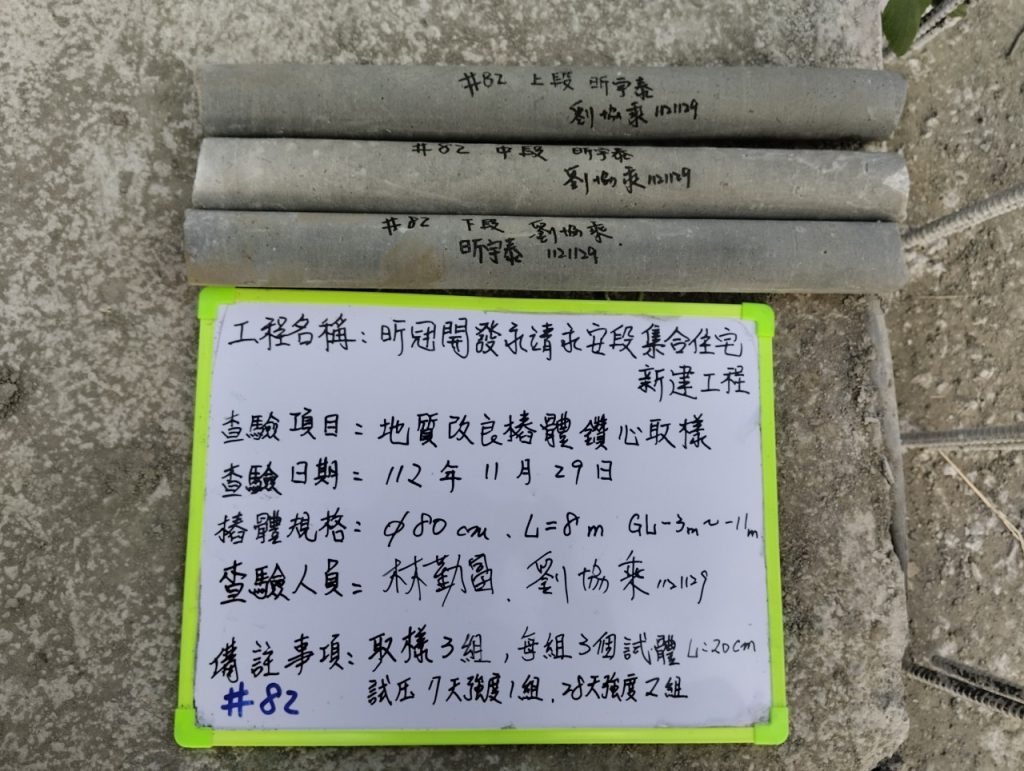 #82 上段 昕宇泰
劉協乘 1121129
#82 中段 昕宇泰
劉協乘 1121129
#82 下段 劉協乘
昕宇泰 1121129
工程名稱：昕冠開發永靖永安段集合住宅
新建工程
查驗項目：地質改良樁體鑽心取樣
查驗日期：112年11月29日
樁體規格：φ80cm、L=8m GL-3m~-11m
查驗人員：林勤富、劉協乘 1121129
備註事項：取樣3組，每組3個試體 L=20cm
試压 7天強度1組、28天強度2組
#82